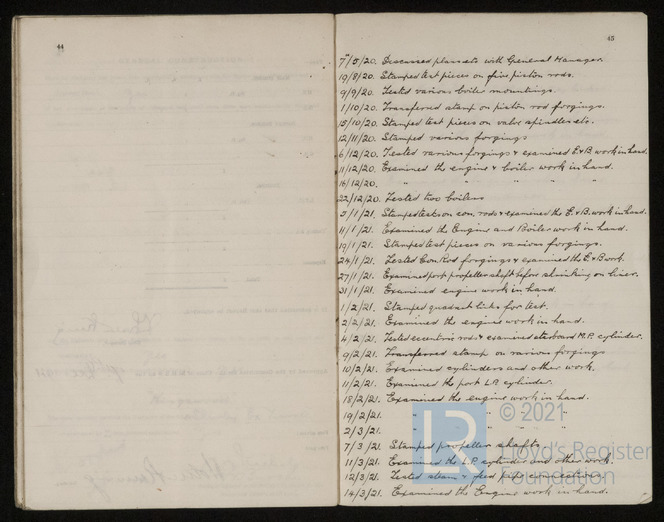 44
45
7/5/20. Discussed plans etc with General Manager.
19/8/20. Stamped test pieces on five piston rods.
9/9/20. Tested various boiler mountings.
1/10/20. Transferred stamp on piston rod forgings.
15/10/20. Stamped test pieces on valve spindles etc.
12/11/20. Stamped various forgings
6/12/20. Tested various forgings & examined E.&B. work in hand.
11/12/20. Examined the engine & boiler work in hand.
16/12/20. " " " "
22/12/20. Tested two boilers
3/1/21. Stamped tests on con. rods & examined the E.&B. work in hand.
11/1/21. Examined the Engine and Boiler work in hand.
19/1/21. Stamped test pieces on various forgings.
24/1/21. Tested Con Rod forgings & examined the E&B work.
27/1/21. Examined port propeller shaft before shrinking on liner.
31/1/21. Examined engine work in hand.
1/2/21. Stamped quadrant links for test.
2/2/21. Examined the engine work in hand.
4/2/21. Tested eccentric rods & examined starboard M.P. cylinder.
9/2/21. Transferred stamp on various forgings
10/2/21. Examined cylinders and other work.
11/2/21. Examined the port L.P. cylinder.
18/2/21. Examined the engine work in hand.
19/2/21. " " "
2/3/21. " " "
7/3/21. Stamped propeller shafts.
11/3/21. Examined the L.P. cylinder and other work.
12/3/21. Tested steam & feed pipe connections.
14/3/21. Examined the Engine work in hand.
© 2021
LR
Lloyd's Register
Foundation